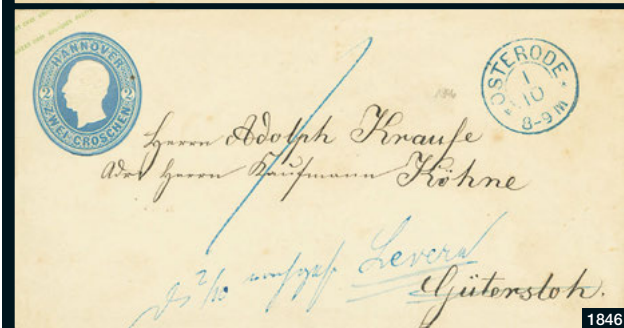 HANNOVER
2 2
ZWEI GROSCHEN
OSTERODE
1
10
8-9 M
Herrn Adolph Krause
Adr Herrn Kaufmann Köhne
2/10 nachges. Levern
Gütersloh.
1846